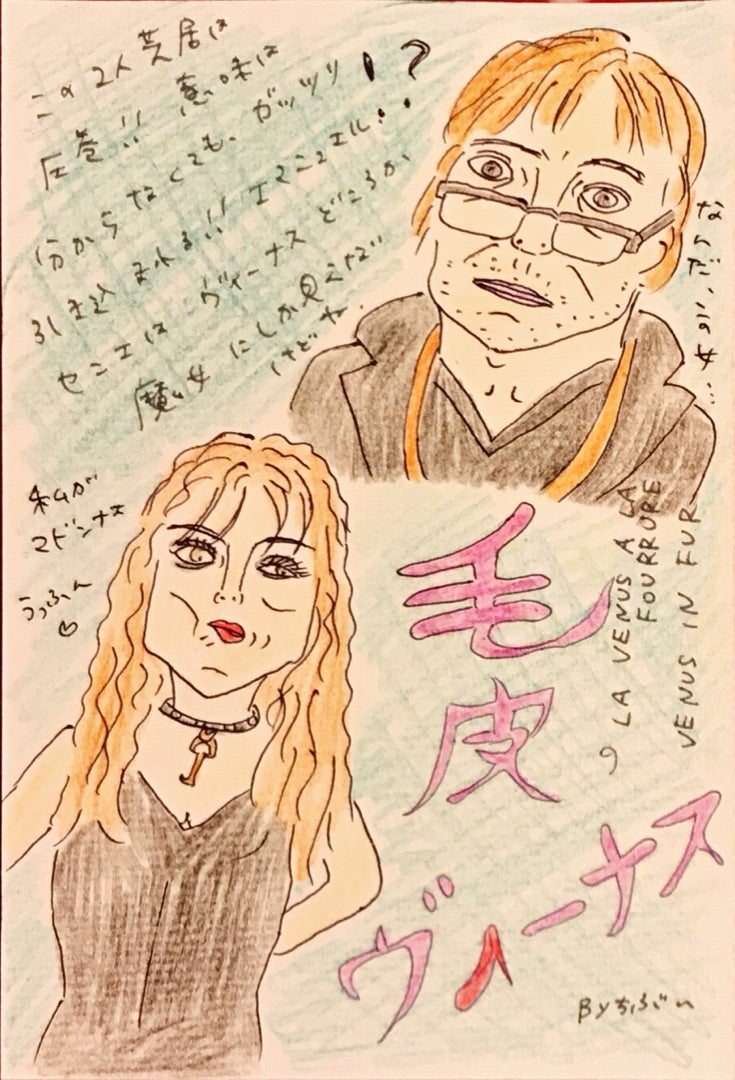 この2人芝居は
圧巻!! 意味は
分からなくても、ガッツリ
引き込まれる!! エマニュエル・
セニエは ヴィーナスどころか
魔女にしか見えない
けどね。
!?
なんだ、この女…
私が
うっふん♡
毛皮
の
ヴィーナス
LA VENUS A LA
FOURRURE
VENUS IN FUR
By